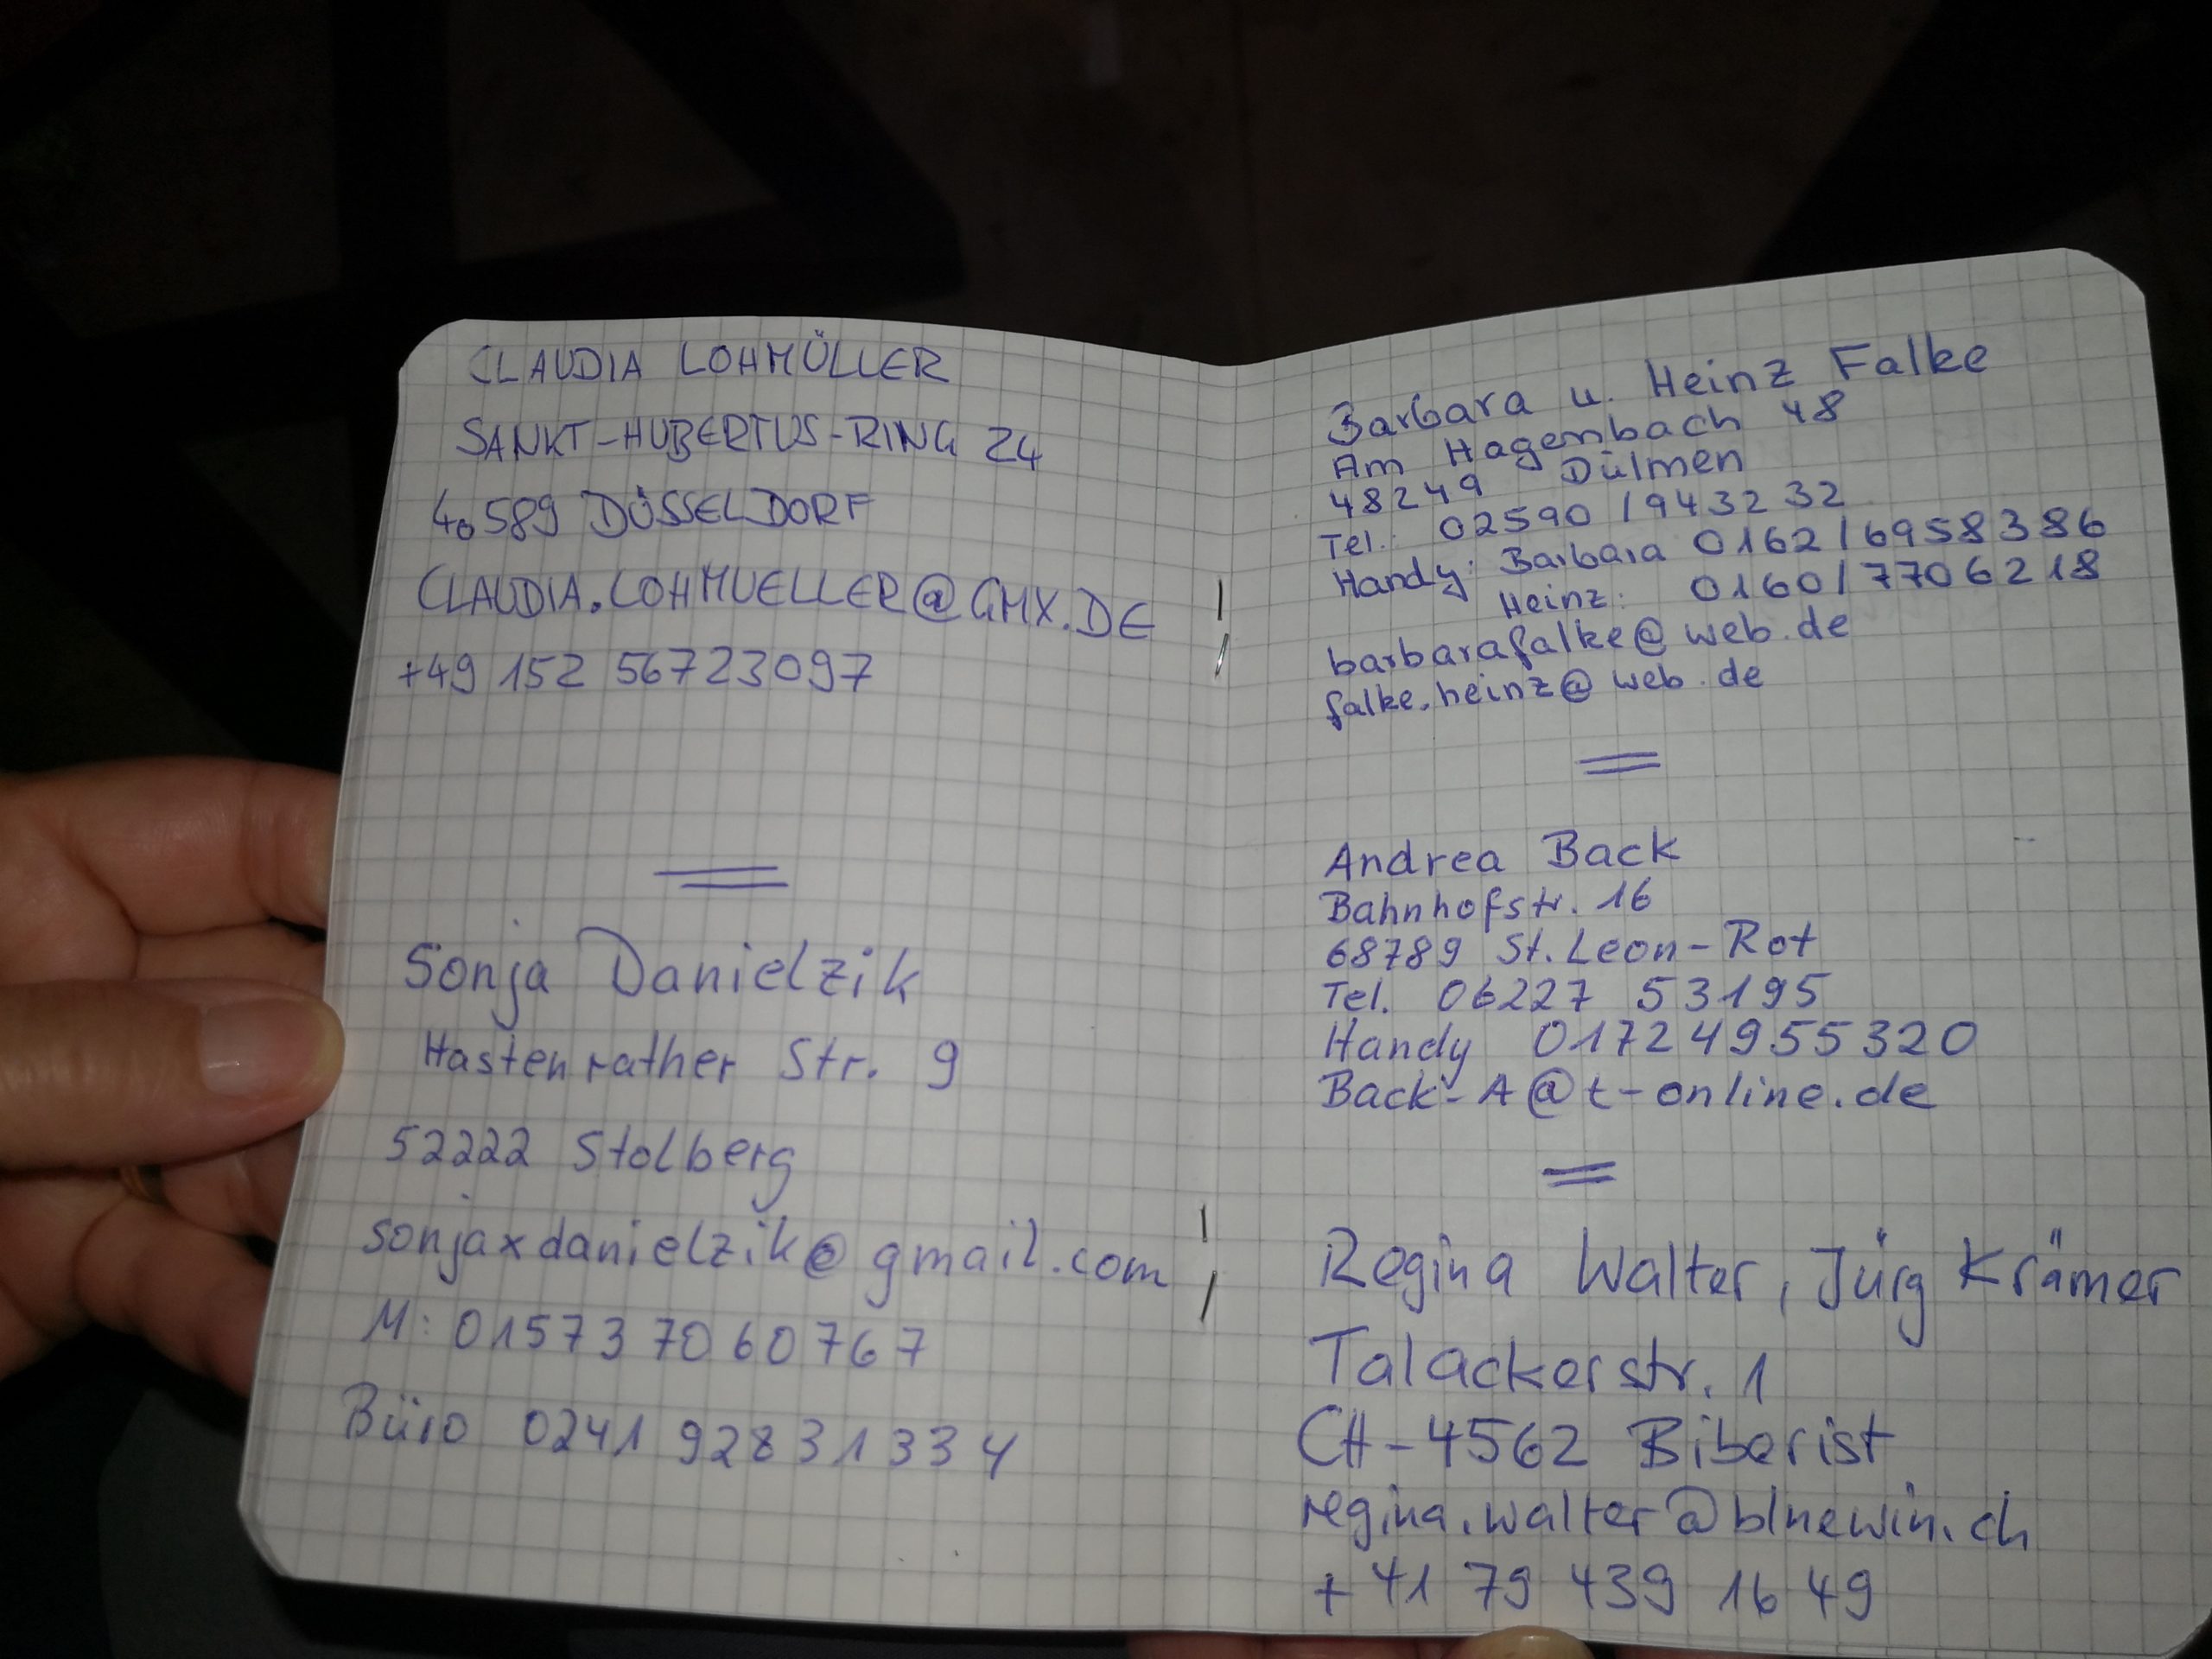 CLAUDIA LOHMÜLLER
SANKT-HUBERTUS-RING 24
40589 DÜSSELDORF
CLAUDIA.LOHMUELLER@GMX.DE
+49 152 56723097
Sonja Danielzik
Hastenrather Str. 9
52222 Stolberg
sonjaxdanielzik@gmail.com
M: 01573 70 60 767
Büro 0241 92831334
Barbara u. Heinz Falke
Am Hagenbach 48
48249 Dülmen
Tel.: 02590 / 943232
Handy: Barbara 0162/6958386
Heinz: 0160/7706218
barbarafalke@web.de
falke.heinz@web.de
Andrea Back
Bahnhofstr. 16
68789 St. Leon-Rot
Tel. 06227 53195
Handy 01724955320
Back-A@t-online.de
Regina Walter, Jürg Krämer
Talackerstr. 1
CH-4562 Biberist
regina.walter@blnewin.ch
+41 79 439 16 49